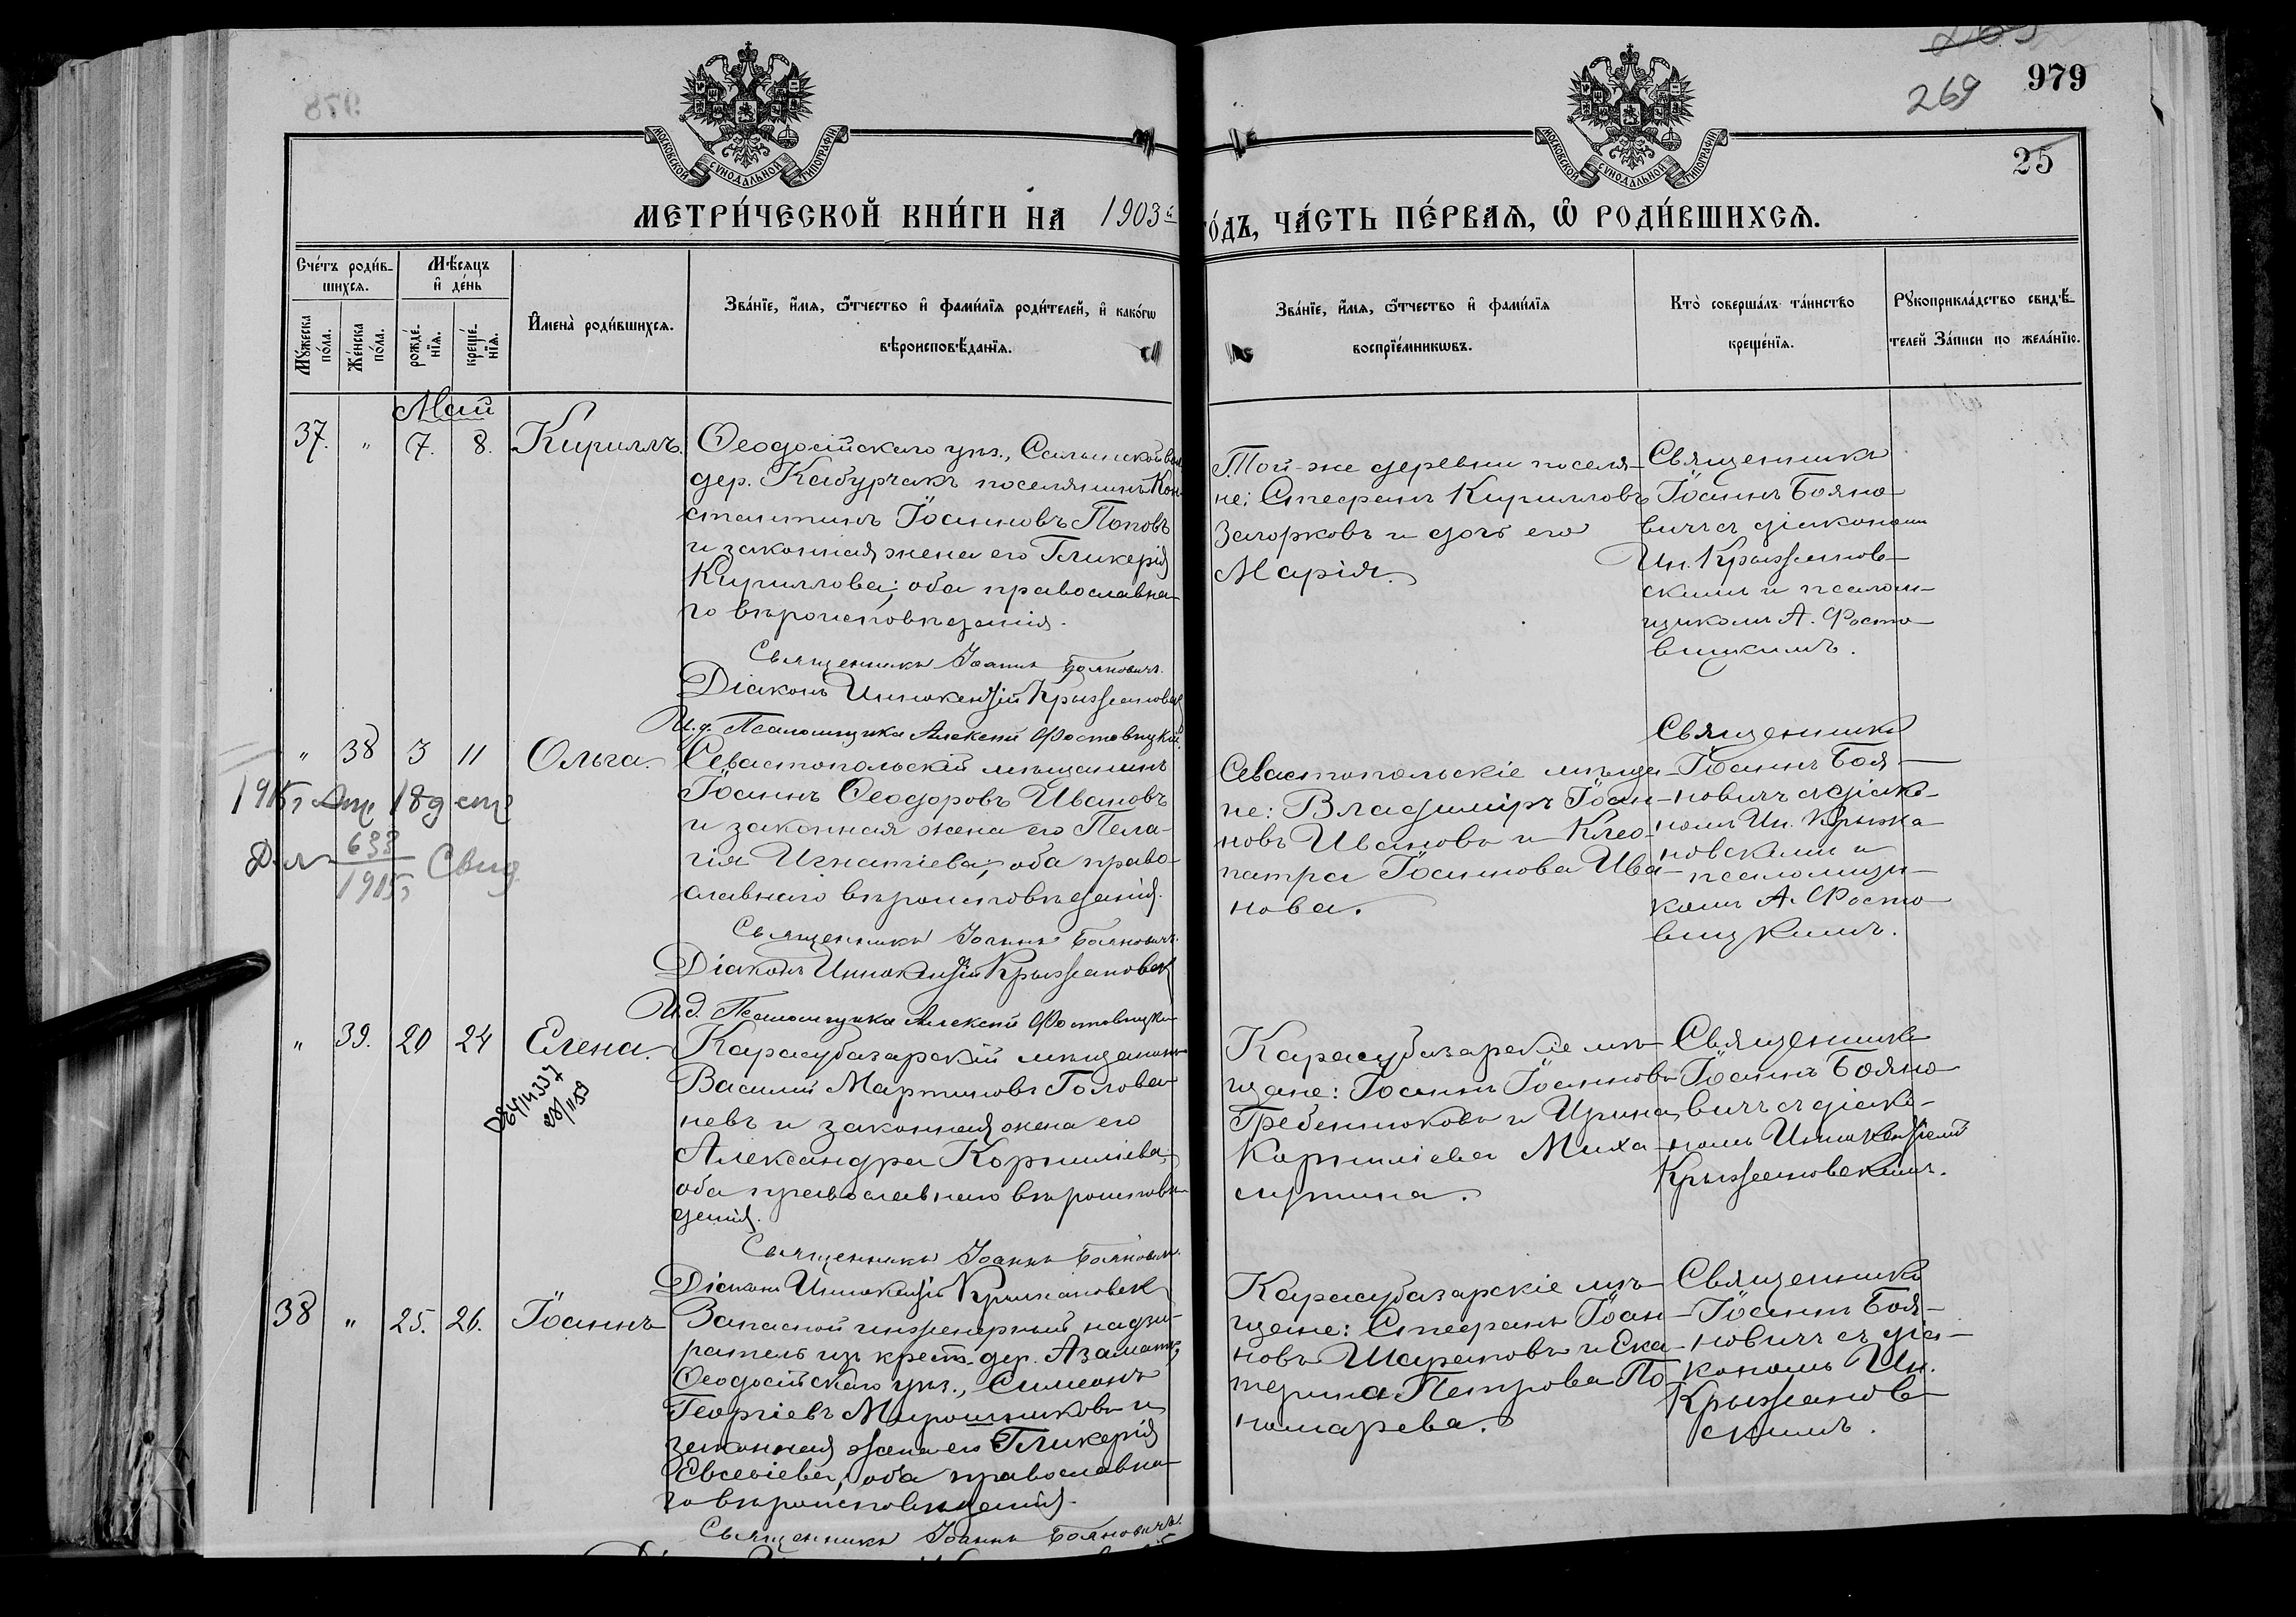 979
269
25
МЕТРИ́ЧЕСКОЙ КНИ́ГИ НА 1903й
ГО́ДЪ, ЧА́СТЬ ПЕ́РВАЯ, Ѡ РОДИ́ВШИХСЯ.
МОСКОВСКОЙ СѴНОДАЛЬНОЙ ТИПОГРАФІИ
МОСКОВСКОЙ СѴНОДАЛЬНОЙ ТИПОГРАФІИ
Сче́тъ роди́в-
шихся.
Мѣ́сяцъ
и҆ де́нь
Мꙋ́жеска
по́ла.
Же́нска
по́ла.
рожде́-
нїя.
креще́-
нїя.
И҆мена̀ роди́вшихся.
Зва́нїе, и҆́мя, ѻ҆́тчество и҆ фами́лїя роди́телей, и҆ како́гѡ
вѣроисповѣ́данїя.
Зва́нїе, и҆́мя, ѻ҆́тчество и҆ фами́лїя
воспрїе́мникѡвъ.
Кто̀ соверша́лъ та́инство
креще́нїя.
Рꙋкоприкла́дство свидѣ́-
телей За́писи по жела́нїю.
Май
37. " 7. 8. Кириллъ.
Ѳеодосійскаго уѣз., Салынской вол.
дер. Кабурчакъ поселянинъ Кон-
стантинъ Іоанновъ Поповъ
и законная жена его Гликерія
Кириллова; оба православна-
го вѣроисповѣданія.
Священникъ Іоаннъ Бояновичъ.
Діаконъ Иннокентій Крыжановск
И. д. Псаломщика Алексій Фостовицкій.
Той-же деревни поселя-
не: Стефанъ Кирилловъ
Загорковъ и дочь его
Марія.
Священникъ
Іоаннъ Бояно-
вичъ съ діакономъ
Ин. Крыжанов-
скимъ и псалом-
щикомъ А. Фосто-
вицкимъ.
" 38 3 11 Ольга.
1915
633
1915
Свид
Севастопольскій мѣщанинъ
Іоаннъ Ѳеодоровъ Ивановъ
и законная жена его Пела-
гія Игнатіева; оба право-
славнаго вѣроисповѣданія.
Священникъ Іоаннъ Бояновичъ.
Діаконъ Иннокентій Крыжановск
И. д. Псаломщика Алексій Фостовицкі
Севастопольскіе мѣща-
не: Владиміръ Іоан-
новъ Ивановъ и Клео-
патра Іоаннова Ива-
нова.
Священникъ
Іоаннъ Боя-
новичъ съ діако-
номъ Ин. Крыжа-
новскимъ и
псаломщи-
комъ А. Фосто-
вицкимъ.
" 39. 20 24 Елена.
Карасубазарскій мѣщанинъ
Василій Мартиновъ Голова-
невъ и законная жена его
Александра Корниліева,
оба православнаго вѣроисповѣ-
данія.
Священникъ Іоаннъ Бояновичъ.
Діаконъ Иннокентій Крыжановск
Карасубазарскіе мѣ-
щане: Іоаннъ Іоанновъ
Гребенниковъ и Ирина
Корниліева Миха-
Священникъ
Іоаннъ Бояно-
вичъ съ діако-
номъ Иннокентіемъ
Крыжановскимъ.
38 " 25. 26. Іоаннъ
Запасной инженерный надзи-
ратель изъ крест. дер. Азаматъ,
Ѳеодосійскаго уѣз., Симеонъ
Георгіевъ Мирошниковъ и
законная жена его Гликерія
Евсевіева, оба православна-
го вѣроисповѣданія.
Священникъ Іоаннъ Бояновичъ.
Карасубазарскіе мѣ-
щане: Стефанъ Іоан-
новъ Шараповъ и Ека-
терина Петрова По-
номарева.
Священникъ
Іоаннъ Боя-
новичъ съ діа-
кономъ Ин.
Крыжанов-
скимъ.